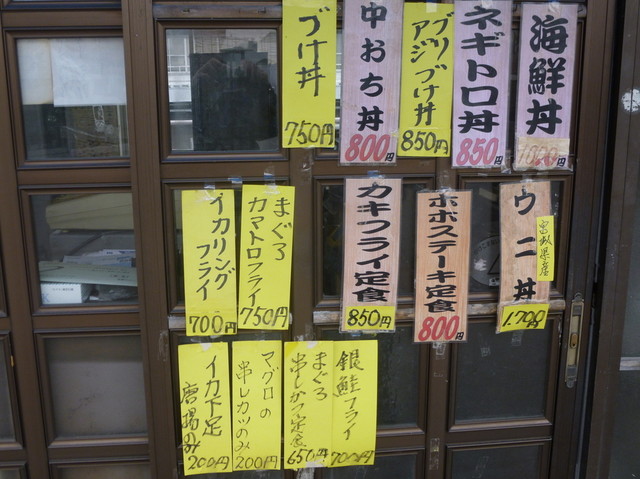 海鮮丼
ネギトロ丼
850円
ブリ
アジづけ丼
850円
中おち丼
800円
づけ丼
750円
ウニ丼
宮城県産
1,700円
ホホステーキ定食
800円
カキフライ定食
850円
まぐろ
カマトロフライ
750円
イカリング
フライ
700円
銀鮭フライ
700円
まぐろ
串しかつ定食
650円
マグロの
串しカツのみ
200円
イカ下足
唐揚のみ
200円